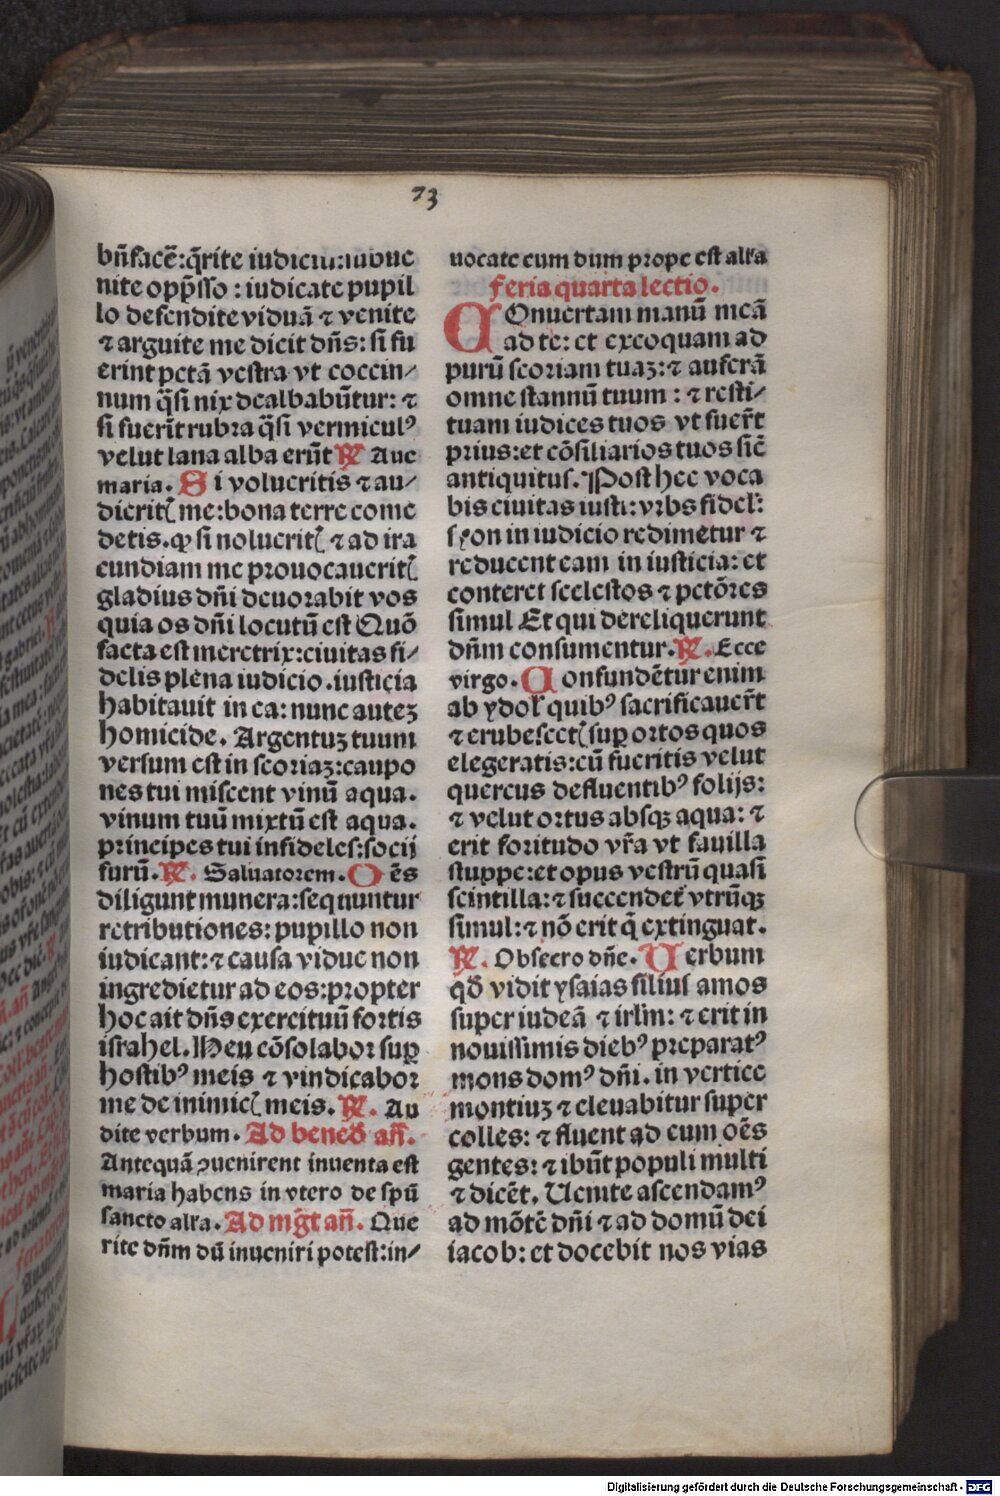 73
bn̄facē: q̄rite iudiciū: subue
nite opp̄sso : iudicate pupil
lo defendite viduā ⁊ venite
⁊ arguite me dicit dn̄s: si fu
erint pctā vestra vt coccin⸗
num q̄si nix dealbabūtur: ⁊
si fuerīt rubra q̄si vermiculꝰ
velut lana alba erūt ℟ Aue
maria. Si volueritis ⁊ au⸗
dieritꝭ me: bona terre come
detis. ꝙ si noluеritꝭ ⁊ ad ira
cundiam me prouocaueritꝭ
gladius dn̄i deuorabit vos
quia os dn̄i locutū est Quō
facta est meretrix: ciuitas fi⸗
delis plena iudicio. iusticia
habitauit in ea: nunc auteꝫ
homicide. Argentuꝫ tuum
versum est in scoriaꝫ: caupo
nes tui miscent vinū aqua.
vinum tuū mixtū est aqua.
principes tui infideles: socij
furū. ℟. Saluatorem. Oēs
diligunt munera: sequuntur
retributiones: pupillo non
iudicant: ⁊ causa vidue non
ingredietur ad eos: propter
hoc ait dn̄s exercituū fortis
israhel. Heu cōsolabor suꝑ
hostibꝰ meis ⁊ vindicabor
me de inimicꝭ meis. ℟. Au
dite verbum. Ad bened̄ an̄.
Antequā ꝯuenirent inuenta est
maria habens in vtero de spū
sancto alľa. Ad mg̅t an̄. Que
rite dn̄m dū inueniri potest: in⸗
uocate eum dum prope est alľa
feria quarta lectio.
COnuertam manū meā
ad te: et excoquam ad
purū scoriam tuaꝫ: ⁊ auferā
omne stannū tuum : ⁊ resti⸗
tuam iudices tuos vt fuerīt
prius: et cōsiliarios tuos sic̄
antiquitus. Post hec voca
bis ciuitas iusti: vrbs fidel̛:
syon in iudicio redimetur ⁊
reducent eam in iusticia: et
conteret scelestos ⁊ pctōres
simul Et qui dereliquerunt
dn̄m consumentur. ℟. Ecce
virgo. Confundētur enim
ab ydoꝝ quibꝰ sacrificauerīt
⁊ erubescetꝭ suꝑ ortos quos
elegeratis: cū fueritis velut
quercus defluentibꝰ folijs:
⁊ velut ortus absqꝫ aqua: ⁊
erit foritudo vr̄a vt fauilla
stuppe: et opus vestrū quasi
scintilla: ⁊ succendet̛ vtrūqꝫ
simul: ⁊ nō erit q̄ extinguat.
℟. Obsecro dn̄e. Uerbum
qd̄ vidit ysaias filius amos
super iudeā ⁊ irľm: ⁊ erit in
nouissimis diebꝰ preparatꝰ
mons domꝰ dn̄i. in vertice
montiuꝫ ⁊ eleuabitur super
colles: ⁊ fluent ad eum oēs
gentes: ⁊ ibūt populi multi
⁊ dicēt. Uenite ascendamꝰ
ad mōtē dn̄i ⁊ ad domū dei
iacob: et docebit nos vias
Digitalisierung gefördert durch die Deutsche Forschungsgemeinschaft - DFG